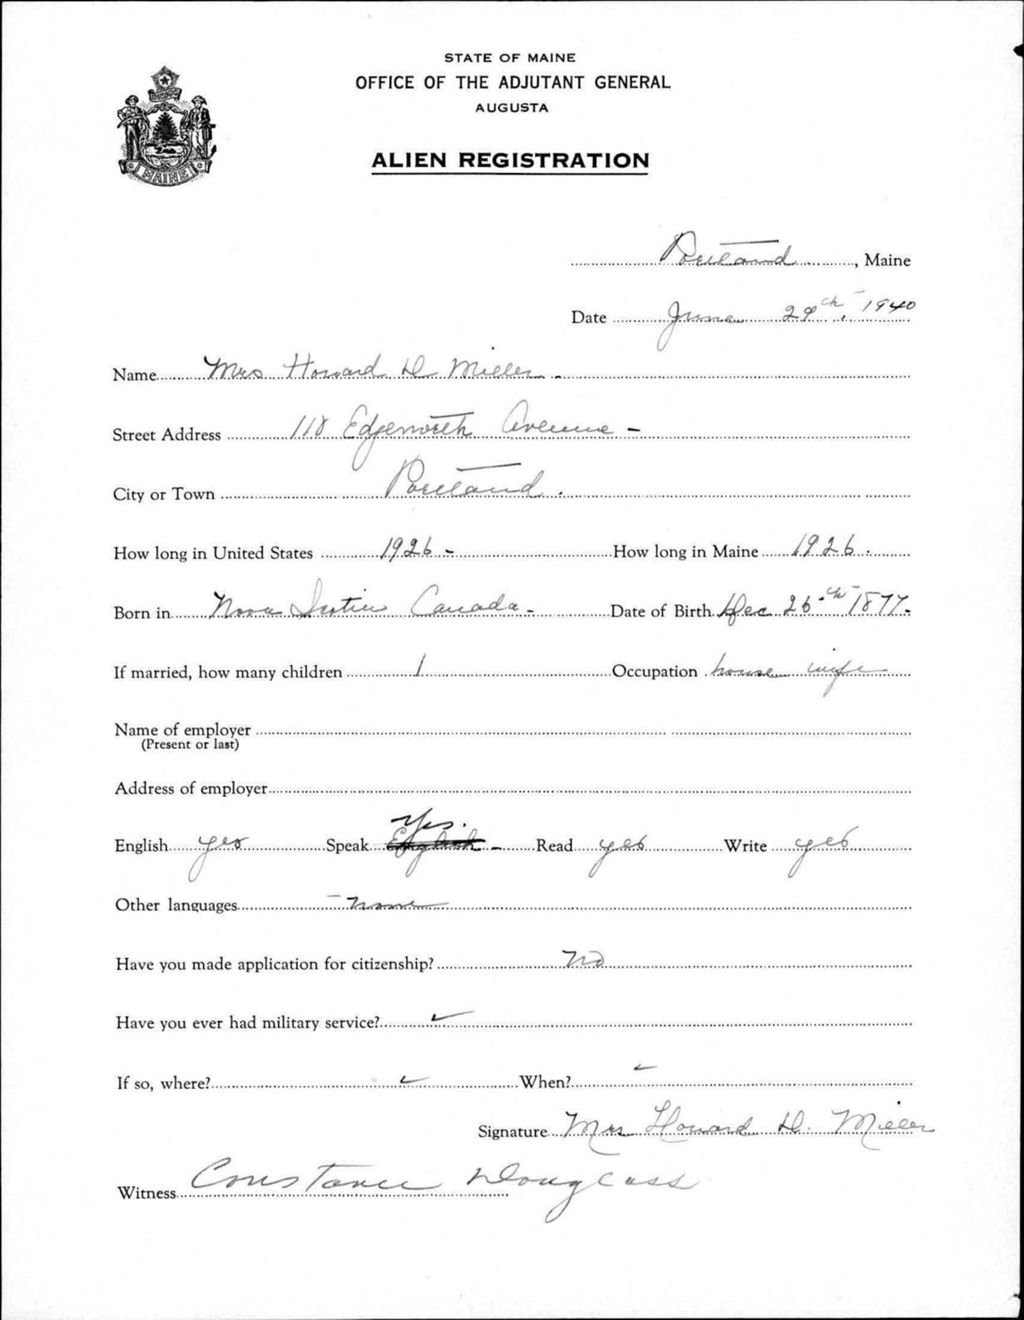 STATE OF MAINE
OFFICE OF THE ADJUTANT GENERAL
AUGUSTA
MAINE
ALIEN REGISTRATION
Portland, Maine
Date June 29th, 1940
Name Mrs Howard D Miller -
Street Address 118 Edgeworth Avenue -
City or Town Portland.
How long in United States 1926 - How long in Maine 1926.
Born in Nova Scotia Canada - Date of Birth Dec 26th 1877.
If married, how many children 1 Occupation house wife
Name of employer
(Present or last)
Address of employer
English yes Speak English - Yes. Read yes Write yes
Other languages - none
Have you made application for citizenship? No
Have you ever had military service? ✓
If so, where? ✓ When? ✓
Signature Mrs Howard D. Miller
Witness Constance Douglass